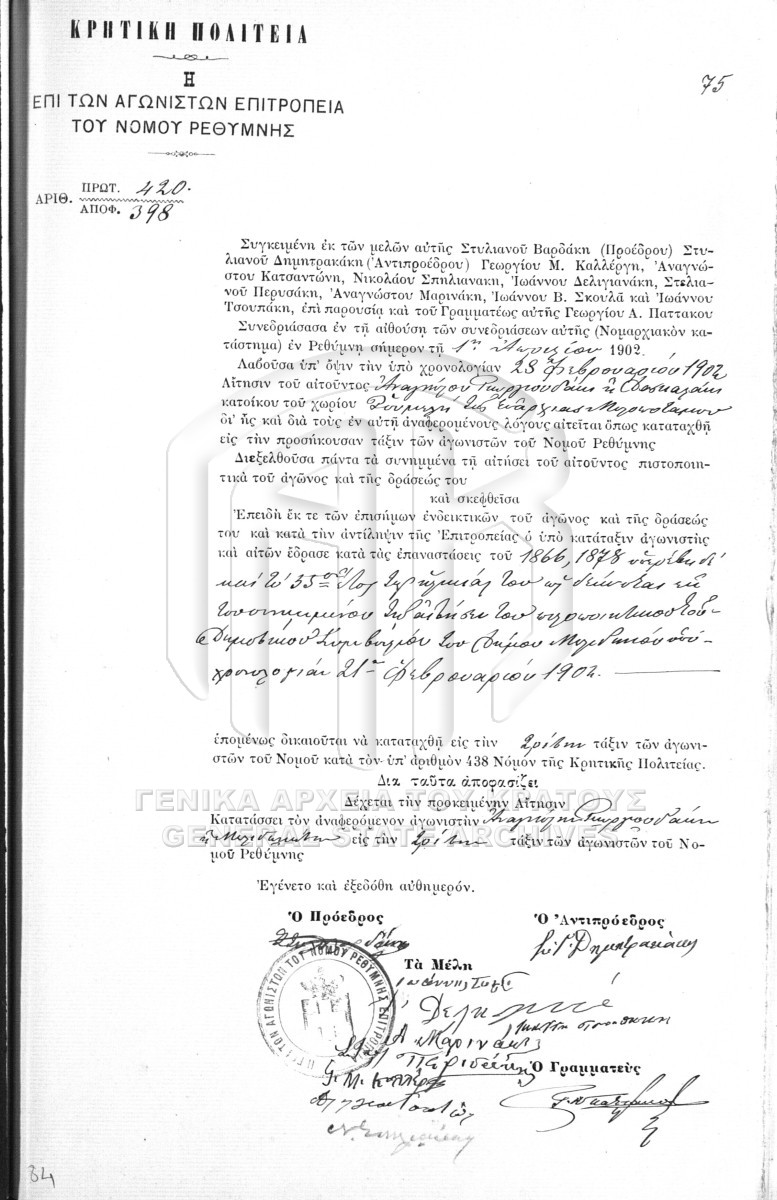 ΚΡΗΤΙΚΗ ΠΟΛΙΤΕΙΑ
Η
ΕΠΙ ΤΩΝ ΑΓΩΝΙΣΤΩΝ ΕΠΙΤΡΟΠΕΙΑ
ΤΟΥ ΝΟΜΟΥ ΡΕΘΥΜΝΗΣ
75
ΑΡΙΘ. ΠΡΩΤ. 420.
ΑΠΟΦ. 398
Συγκειμένη ἐκ τῶν μελῶν αὐτῆς Στυλιανοῦ Βαρδάκη (Προέδρου) Στυ-
λιανοῦ Δημητρακάκη (Ἀντιπροέδρου) Γεωργίου Μ. Καλλέργη, Ἀναγνώ-
στου Κατσαντώνη, Νικολάου Σπηλιανακη, Ἰωάννου Δεληγιανάκη, Στελια-
νοῦ Περυσάκη, Ἀναγνώστου Μαρινάκη, Ἰωάννου Β. Σκουλᾶ καὶ Ἰωάννου
Τσουπάκη, ἐπὶ παρουσία καὶ τοῦ Γραμματέως αὐτῆς Γεωργίου Α. Παττακου
Συνεδριάσασα ἐν τῇ αἰθούσῃ τῶν συνεδριάσεων αὐτῆς (Νομαρχιακὸν κα-
τάστημα) ἐν Ρεθύμνῃ σήμερον τῇ 1ῃ Ἀπριλίου 1902.
Λαβοῦσα ὑπ' ὄψιν τὴν ὑπὸ χρονολογίαν 28 Φεβρουαρίου 1902
Αἴτησιν τοῦ αἰτοῦντος Γεωργιουδάκη ἢ Δασκαλάκη
κατοίκου τοῦ χωρίου τῆς Ἐπαρχίας Μυλοποτάμου
δι' ἧς καὶ διὰ τοὺς ἐν αὐτῇ ἀναφερομένους λόγους αἰτεῖται ὅπως καταταχθῇ
εἰς τὴν προσήκουσαν τάξιν τῶν ἀγωνιστῶν τοῦ Νομοῦ Ρεθύμνης
Διεξελθοῦσα πάντα τὰ συνημμένα τῇ αἰτήσει τοῦ αἰτοῦντος πιστοποιη-
τικὰ τοῦ ἀγῶνος καὶ τῆς δράσεώς του
καὶ σκεφθεῖσα
Ἐπειδὴ ἔκ τε τῶν ἐπισήμων ἐνδεικτικῶν τοῦ ἀγῶνος καὶ τῆς δράσεώς
του καὶ κατὰ τὴν ἀντίληψιν τῆς Ἐπιτροπείας ὁ ὑπὸ κατάταξιν ἀγωνιστὴς
καὶ αἰτῶν ἔδρασε κατὰ τὰς ἐπαναστάσεις τοῦ 1866, 1878 ὑπερέβη δὲ
καὶ τὸ 55ον ἔτος τῆς ἡλικίας του ὡς
τοῦ τῇ αἰτήσει του πιστοποιητικοῦ τοῦ
Δημοτικοῦ Συμβουλίου τοῦ Δήμου ὑπὸ
χρονολογίαν 21ην Φεβρουαρίου 1902.
ἑπομένως δικαιοῦται νὰ καταταχθῇ εἰς τὴν Τρίτην τάξιν τῶν ἀγωνι-
στῶν τοῦ Νομοῦ κατὰ τὸν ὑπ' ἀριθμὸν 438 Νόμον τῆς Κρητικῆς Πολιτείας.
Δια ταῦτα ἀποφασίζει
Δέχεται τὴν προκειμένην Αἴτησιν
Κατατάσσει τὸν ἀναφερόμενον ἀγωνιστὴν Γεωργιουδάκην
εἰς τὴν Τρίτην τάξιν τῶν ἀγωνιστῶν τοῦ Νο-
μοῦ Ρεθύμνης
ΓΕΝΙΚΑ ΑΡΧΕΙΑ ΤΟΥ ΚΡΑΤΟΥΣ
GENERAL STATE ARCHIVES
Ἐγένετο καὶ ἐξεδόθη αὐθημερόν.
Ὁ Πρόεδρος
Ὁ Ἀντιπρόεδρος
Δημητρακάκης
Τὰ Μέλη
Α Μαρινάκης
Ὁ Γραμματεὺς
Η ΕΠΙ ΤΩΝ ΑΓΩΝΙΣΤΩΝ ΤΟΥ ΝΟΜΟΥ ΡΕΘΥΜΝΗΣ ΕΠΙΤΡΟΠΕΙΑ
84